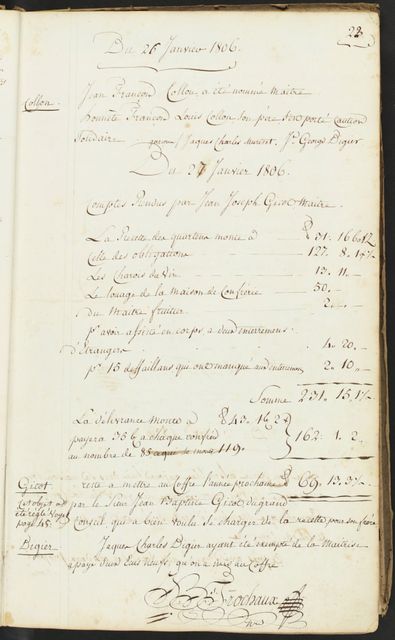 22
Du 26 Janvier 1806.
Collon. Jean François Collon, a été nommé Maître
Honnête François Louis Collon son père s'en porté Caution
Solidaire Jaques Charles Jn George Digier
Du 27 Janvier 1806.
Comptes Rendus par Jean Joseph Gicot Maitre.
La Recette des quartiers monte à ₶ 31. 16
Celle des obligations 127. 8.
Les Charois du Vin 13. 11.
Le louage de la Maison de Confrérie 50.
Du Maitre fruitier 2.
pr avoir assisté en corps a deux enterremens
d'Etrangers 4. 20.
pr. 15 deffaillans que ont manqué aux enterremens 2. 10.
Somme 231. 15.
La délivrance monte à ₶ 43. 16. 2
payera 35 b a chaque confred 162. 1. 2.
au nombre de 119.
Gicot reste a mettre au Coffre l'année prochaine ₶ 69. 13.
Cet objet a été réglé Voyez page 45. par le Sieur Jean Baptiste Gicot du grand
Conseil qui a bien voulu se charger de la recette pour son frère
Digier Jaques Charles Digier ayant été exempté de la Maitrise
a payé deux Ecus neufs, qu'on a mis au Coffre
Frochaux